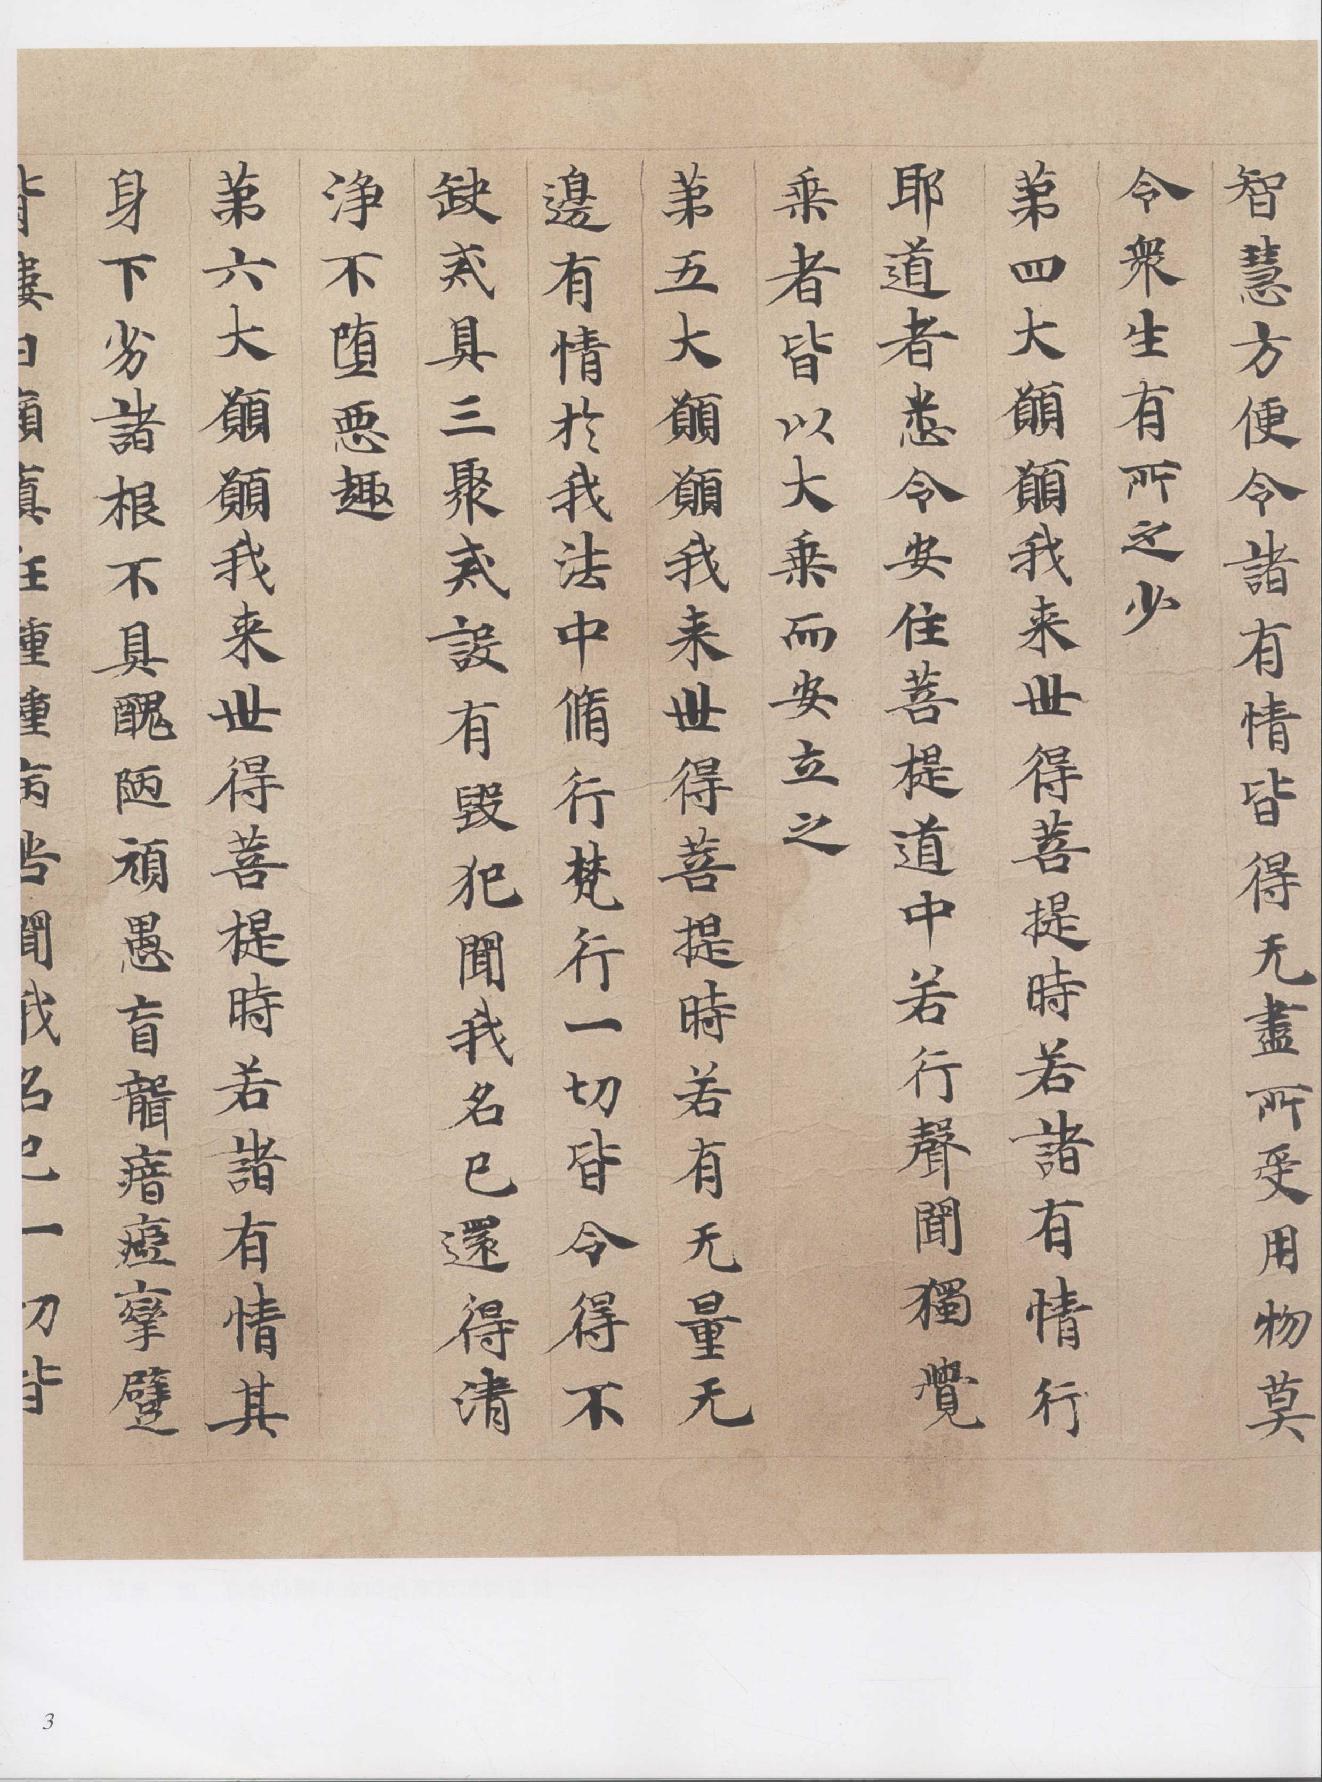 智慧方便令諸有情皆得无盡所受用物莫
令衆生有所乏少
第四大願願我来世得菩提時若諸有情行
耶道者悉令安住菩提道中若行聲聞獨覺
乘者皆以大乘而安立之
第五大願願我来世得菩提時若有无量无
邊有情於我法中脩行梵行一切皆令得不
缺戒具三聚戒設有毀犯聞我名已還得清
淨不堕惡趣
第六大願願我来世得菩提時若諸有情其
身下劣諸根不具醜陋頑愚盲聾瘖瘂攣躄
背僂白癩癲狂種種病苦聞我名已一切皆
3